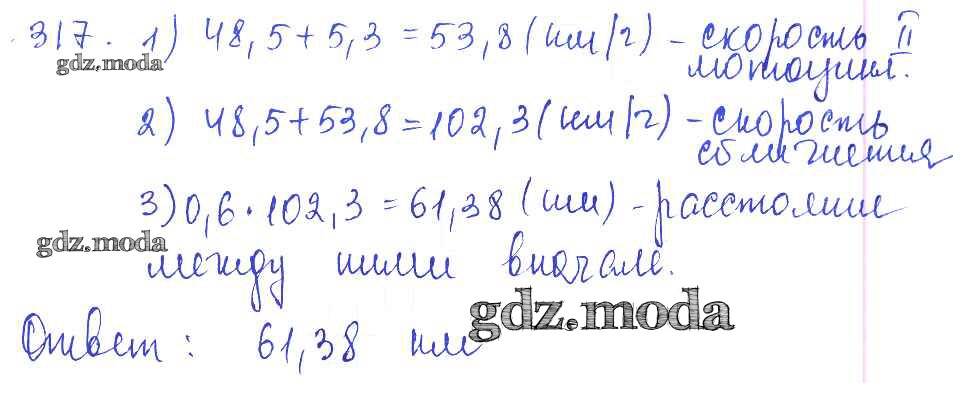 317. 1) 48,5 + 5,3 = 53,8 (км/ч) - скорость II
gdz.moda
мотоцикл.
2) 48,5 + 53,8 = 102,3 (км/ч) - скорость
сближения
3) 0,6 · 102,3 = 61,38 (км) - расстояние
gdz.moda
между ними вначале.
gdz.moda
Ответ: 61,38 км